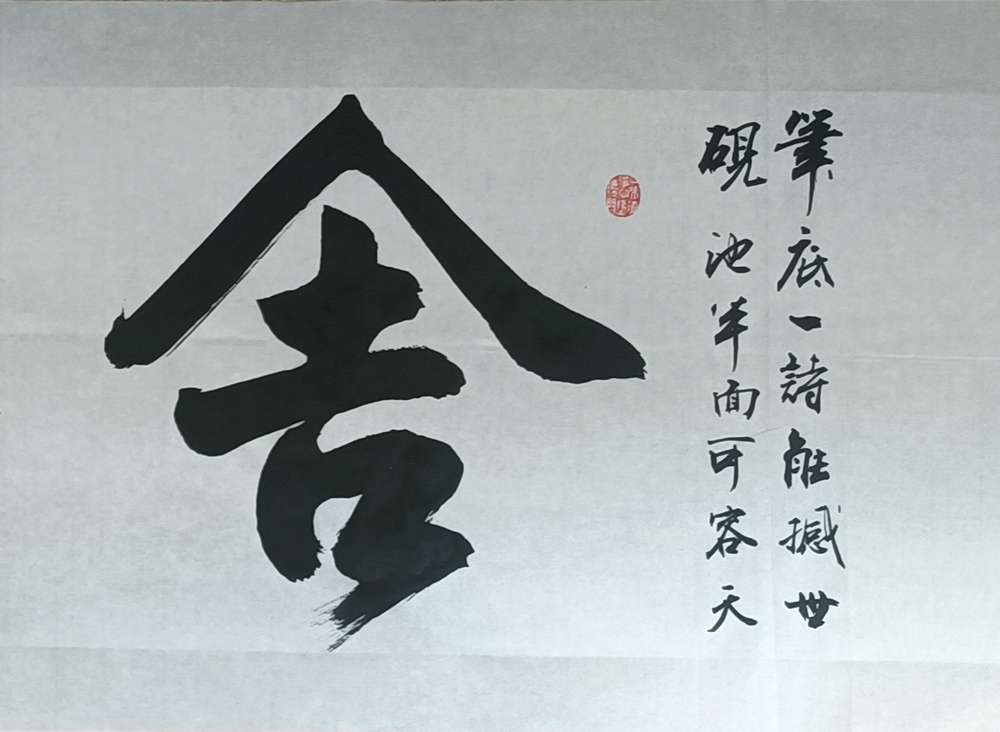 筆底一詩能撼世
硯池半面可容天
舍